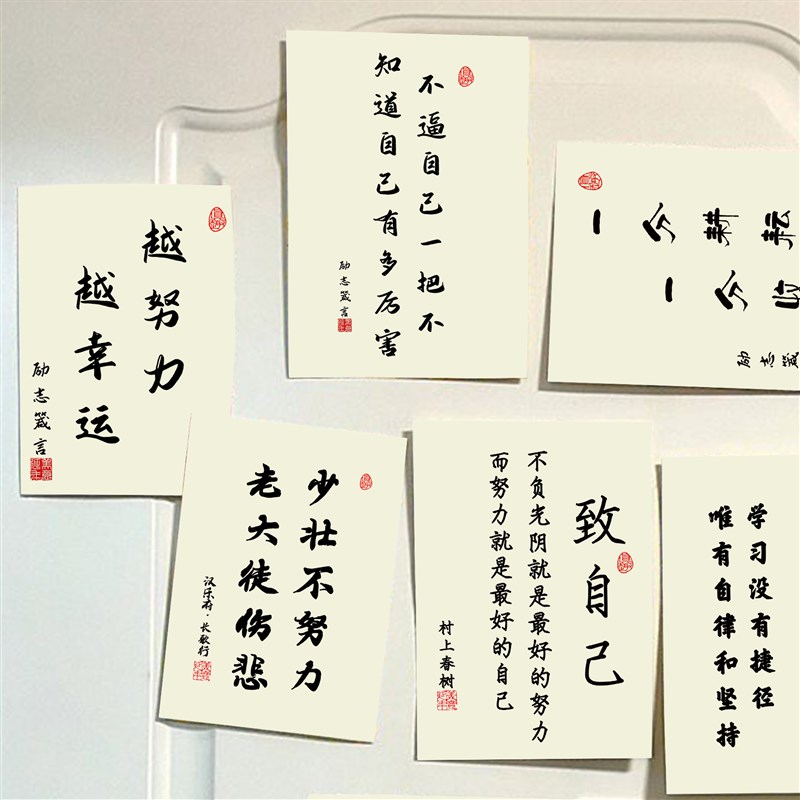 越努力
越幸运
励志箴言
不逼自己一把不
知道自己有多厉害
励志箴言
一分耕耘
一分收
励志箴
少壮不努力
老大徒伤悲
汉乐府·长歌行
致自己
不负光阴就是最好的努力
而努力就是最好的自己
村上春树
学习没有捷径
唯有自律和坚持